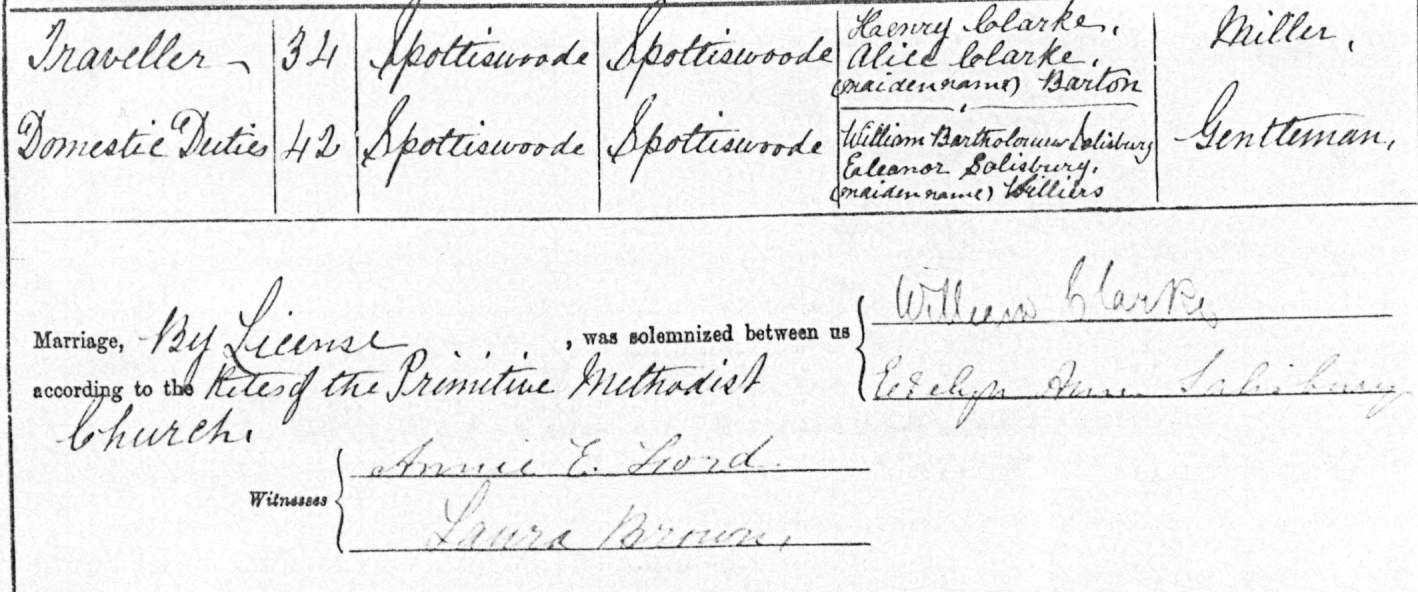 Henry Clarke,
Traveller 34 Spottiswoode Spottiswoode Alice Clarke, Miller,
(maiden name) Barton
Domestic Duties 42 Spottiswoode Spottiswoode William Bartholomew Solisbury Gentleman,
Ealeanor Solisbury,
(maiden name) Williers
William Clarke
Marriage, By License, was solemnized between us
according to the Rites of the Primitive Methodist Evelyn Ann Salisbury
Church.
Annie E. Lord.
Witnesses
Laura Brown,